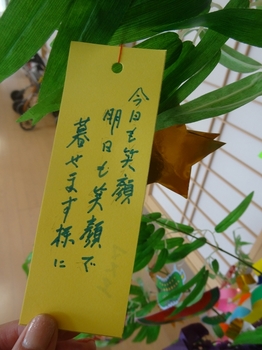 今日も笑顔
明日も笑顔で
暮せます様に